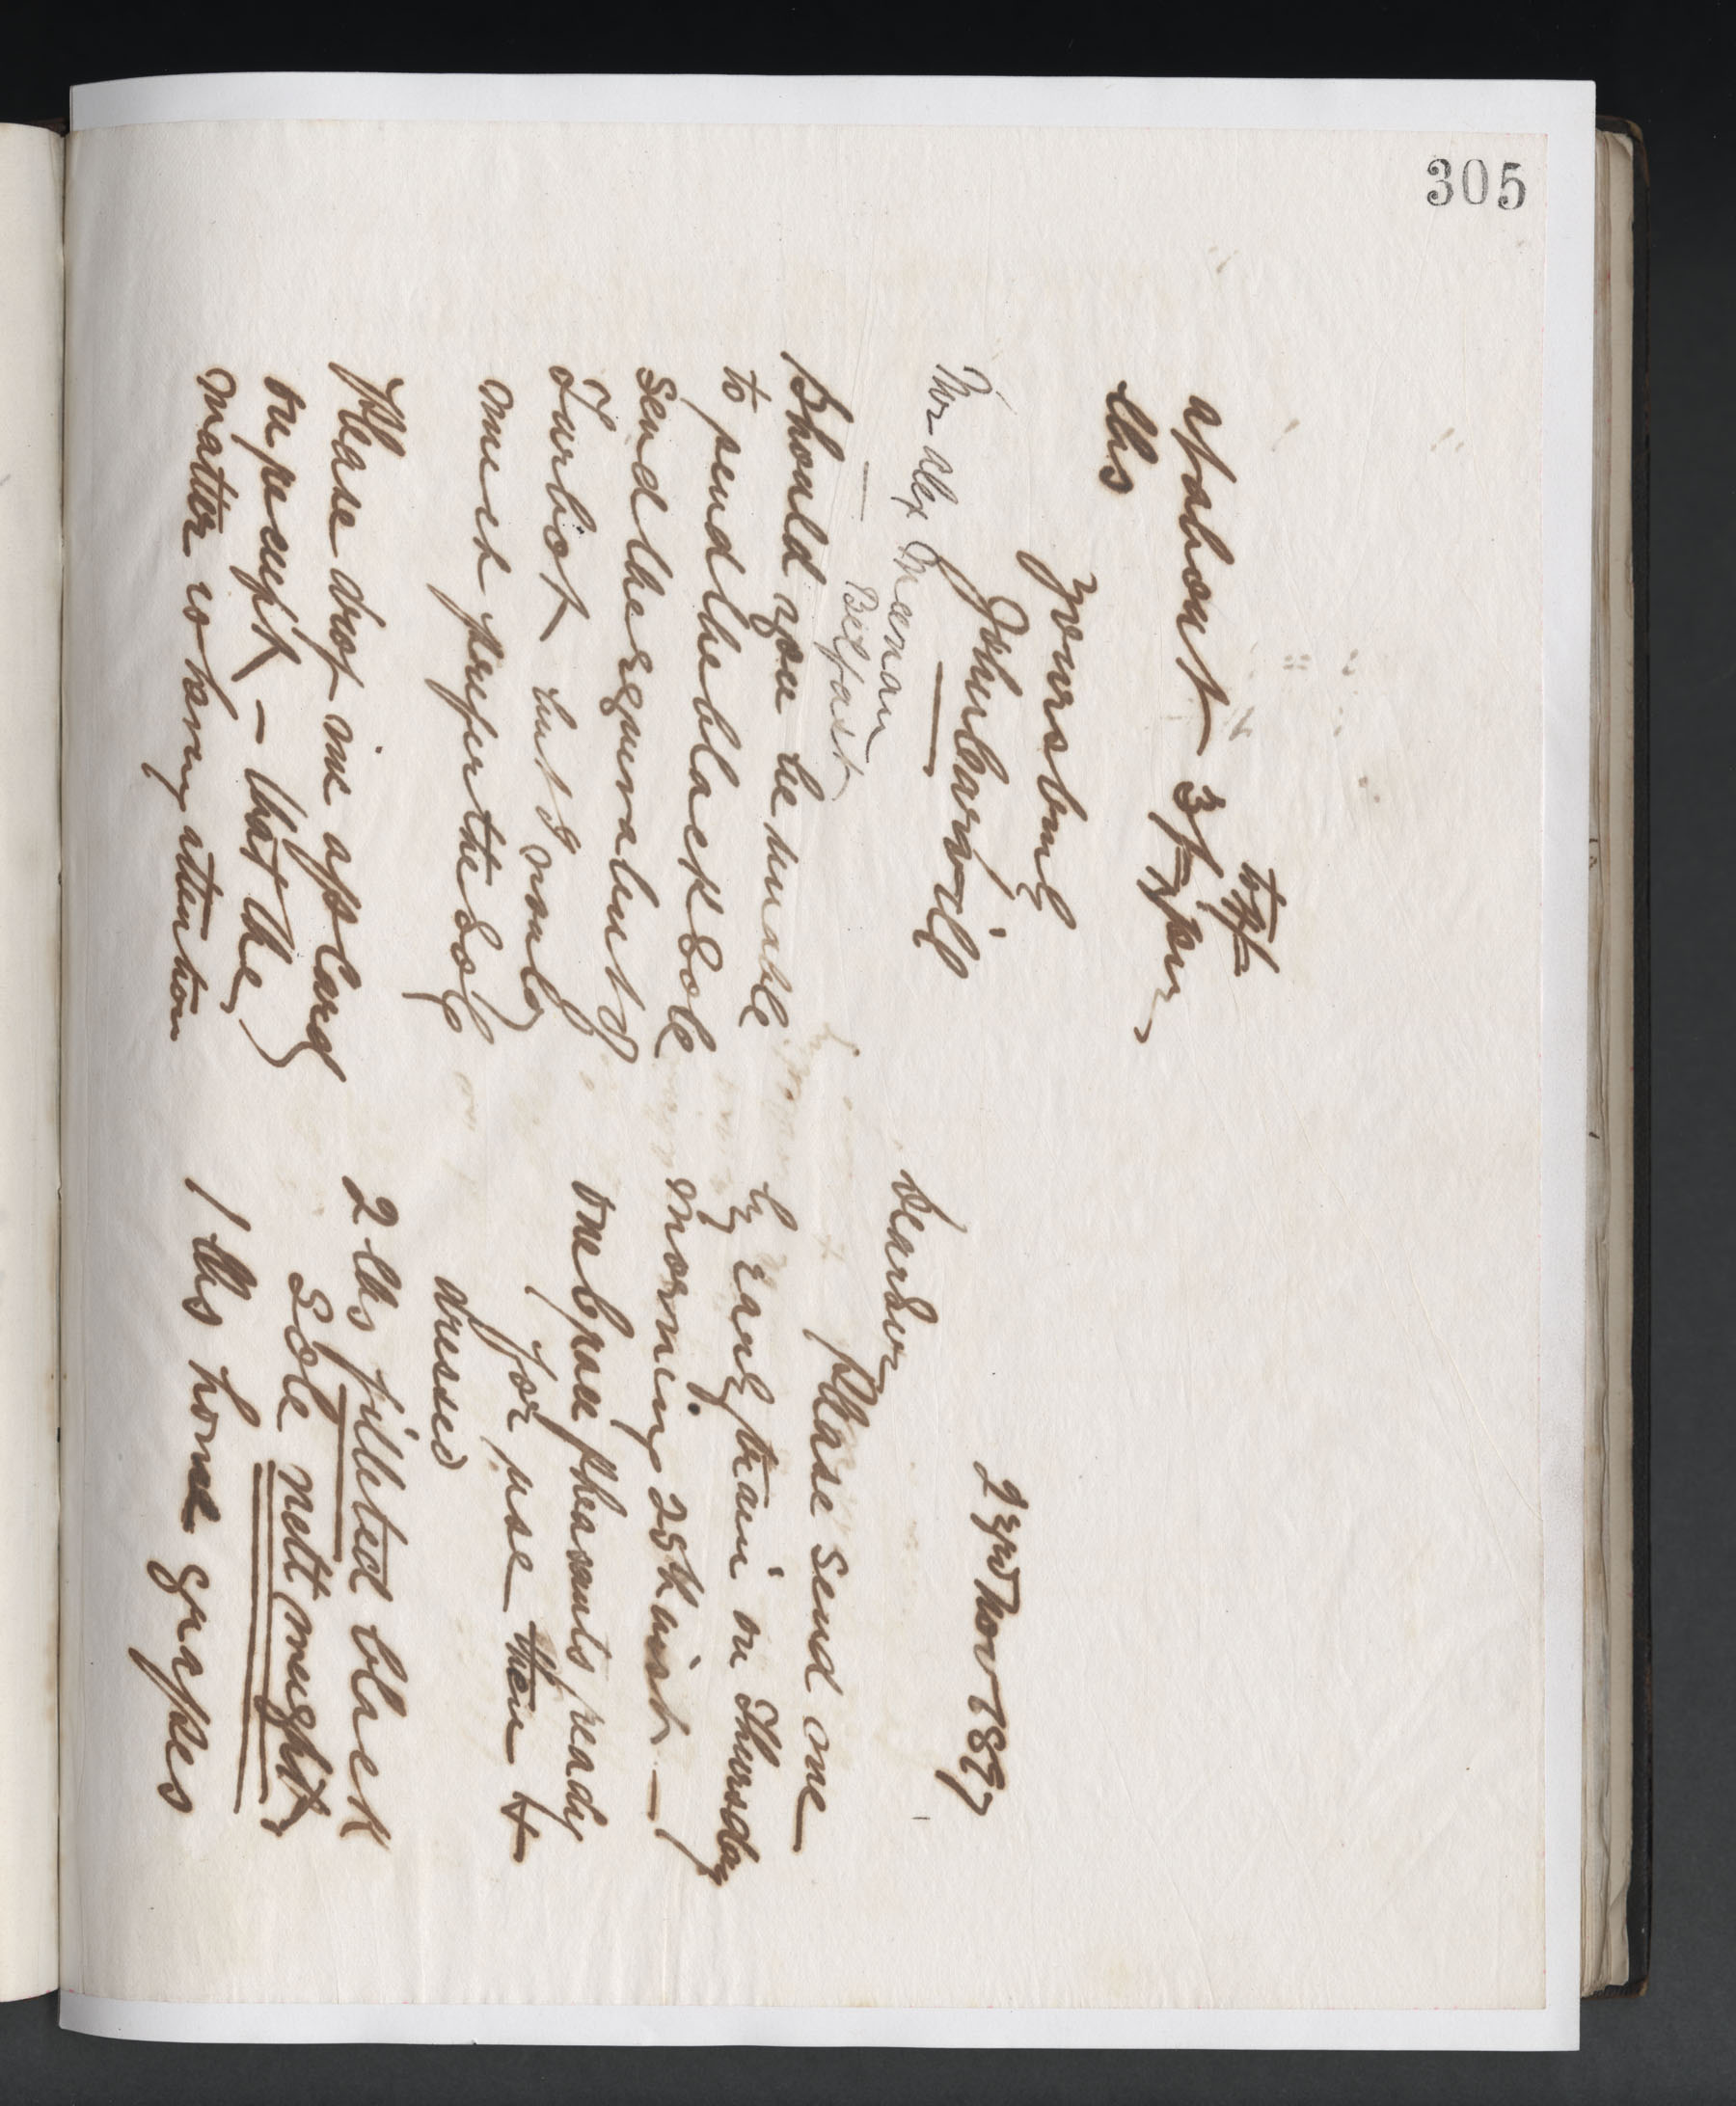 305
23rd Nov 1897
Dear Sir
Please send me
by early train on Thursday
morning 25th inst —
One brace pheasants ready
for use then to
dressed
2 lbs filleted black
Sole nett weight.
1 lbs home grapes
about 3/- per
to 4/-
lbs
Yours truly
John Carvill
Mr Alex
Belfast
Should you be unable
to send the black Sole
Send the equivalent of
Turbot but I would
much prefer the Sole
Please drop me a pst Card
on receipt — that the
matter is having attention